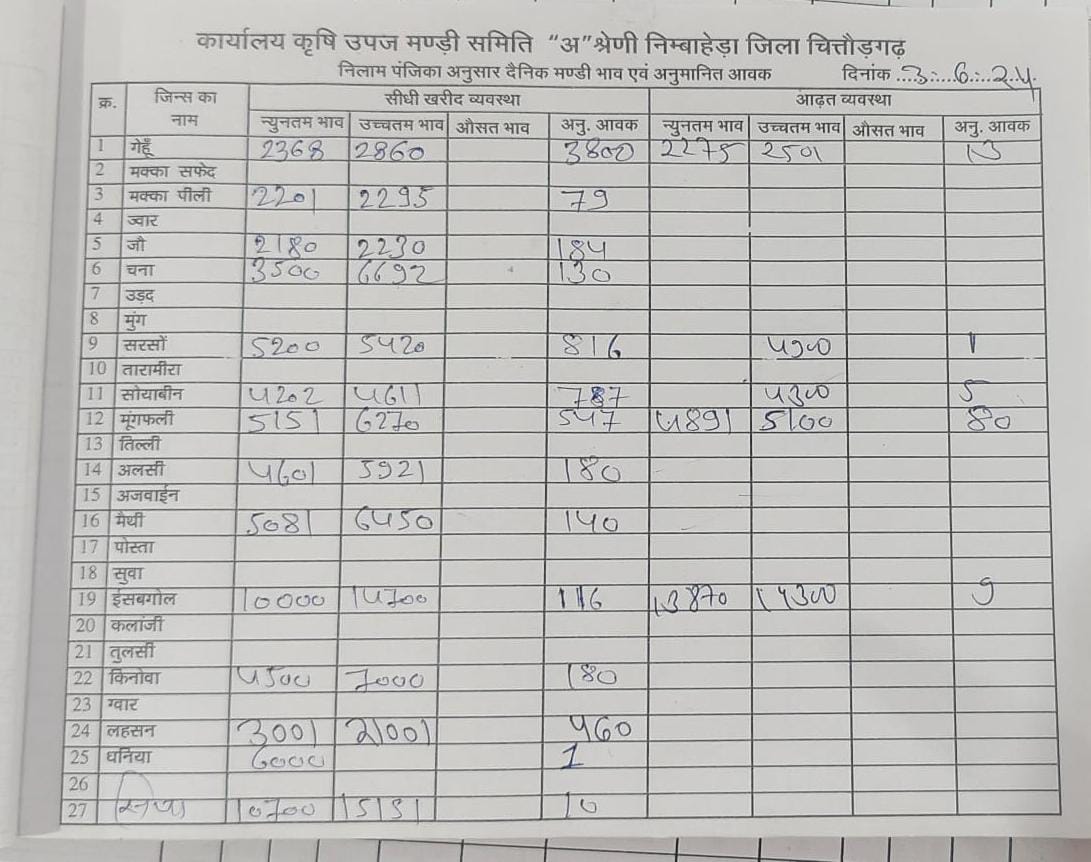 कार्यालय कृषि उपज मण्ड़ी समिति "अ"श्रेणी निम्बाहेड़ा जिला चित्तौड़गढ़
निलाम पंजिका अनुसार दैनिक मण्डी भाव एवं अनुमानित आवक दिनांक 3.6.24.
क्र. जिन्स का नाम सीधी खरीद व्यवस्था आढ़त व्यवस्था
न्युनतम भाव उच्चतम भाव औसत भाव अनु. आवक न्युनतम भाव उच्चतम भाव औसत भाव अनु. आवक
1 गेहूँ 2368 2860 3800 2275 2501 13
2 मक्का सफेद
3 मक्का पीली 2201 2295 79
4 ज्वार
5 जौ 2180 2230 184
6 चना 3500 6692 130
7 उड़द
8 मुंग
9 सरसों 5200 5420 816 4900 1
10 तारामीरा
11 सोयाबीन 4202 4611 787 4300 5
12 मूंगफली 5151 6270 547 4891 5100 80
13 तिल्ली
14 अलसी 4601 5921 180
15 अजवाईन
16 मैथी 5081 6450 140
17 पोस्ता
18 सुवा
19 ईसबगोल 10000 14700 116 13870 14300 9
20 कलांजी
21 तुलसी
22 किनोवा 4500 7000 180
23 ग्वार
24 लहसन 3001 21001 460
25 धनिया 6000 1
26
27 10700 15151 10